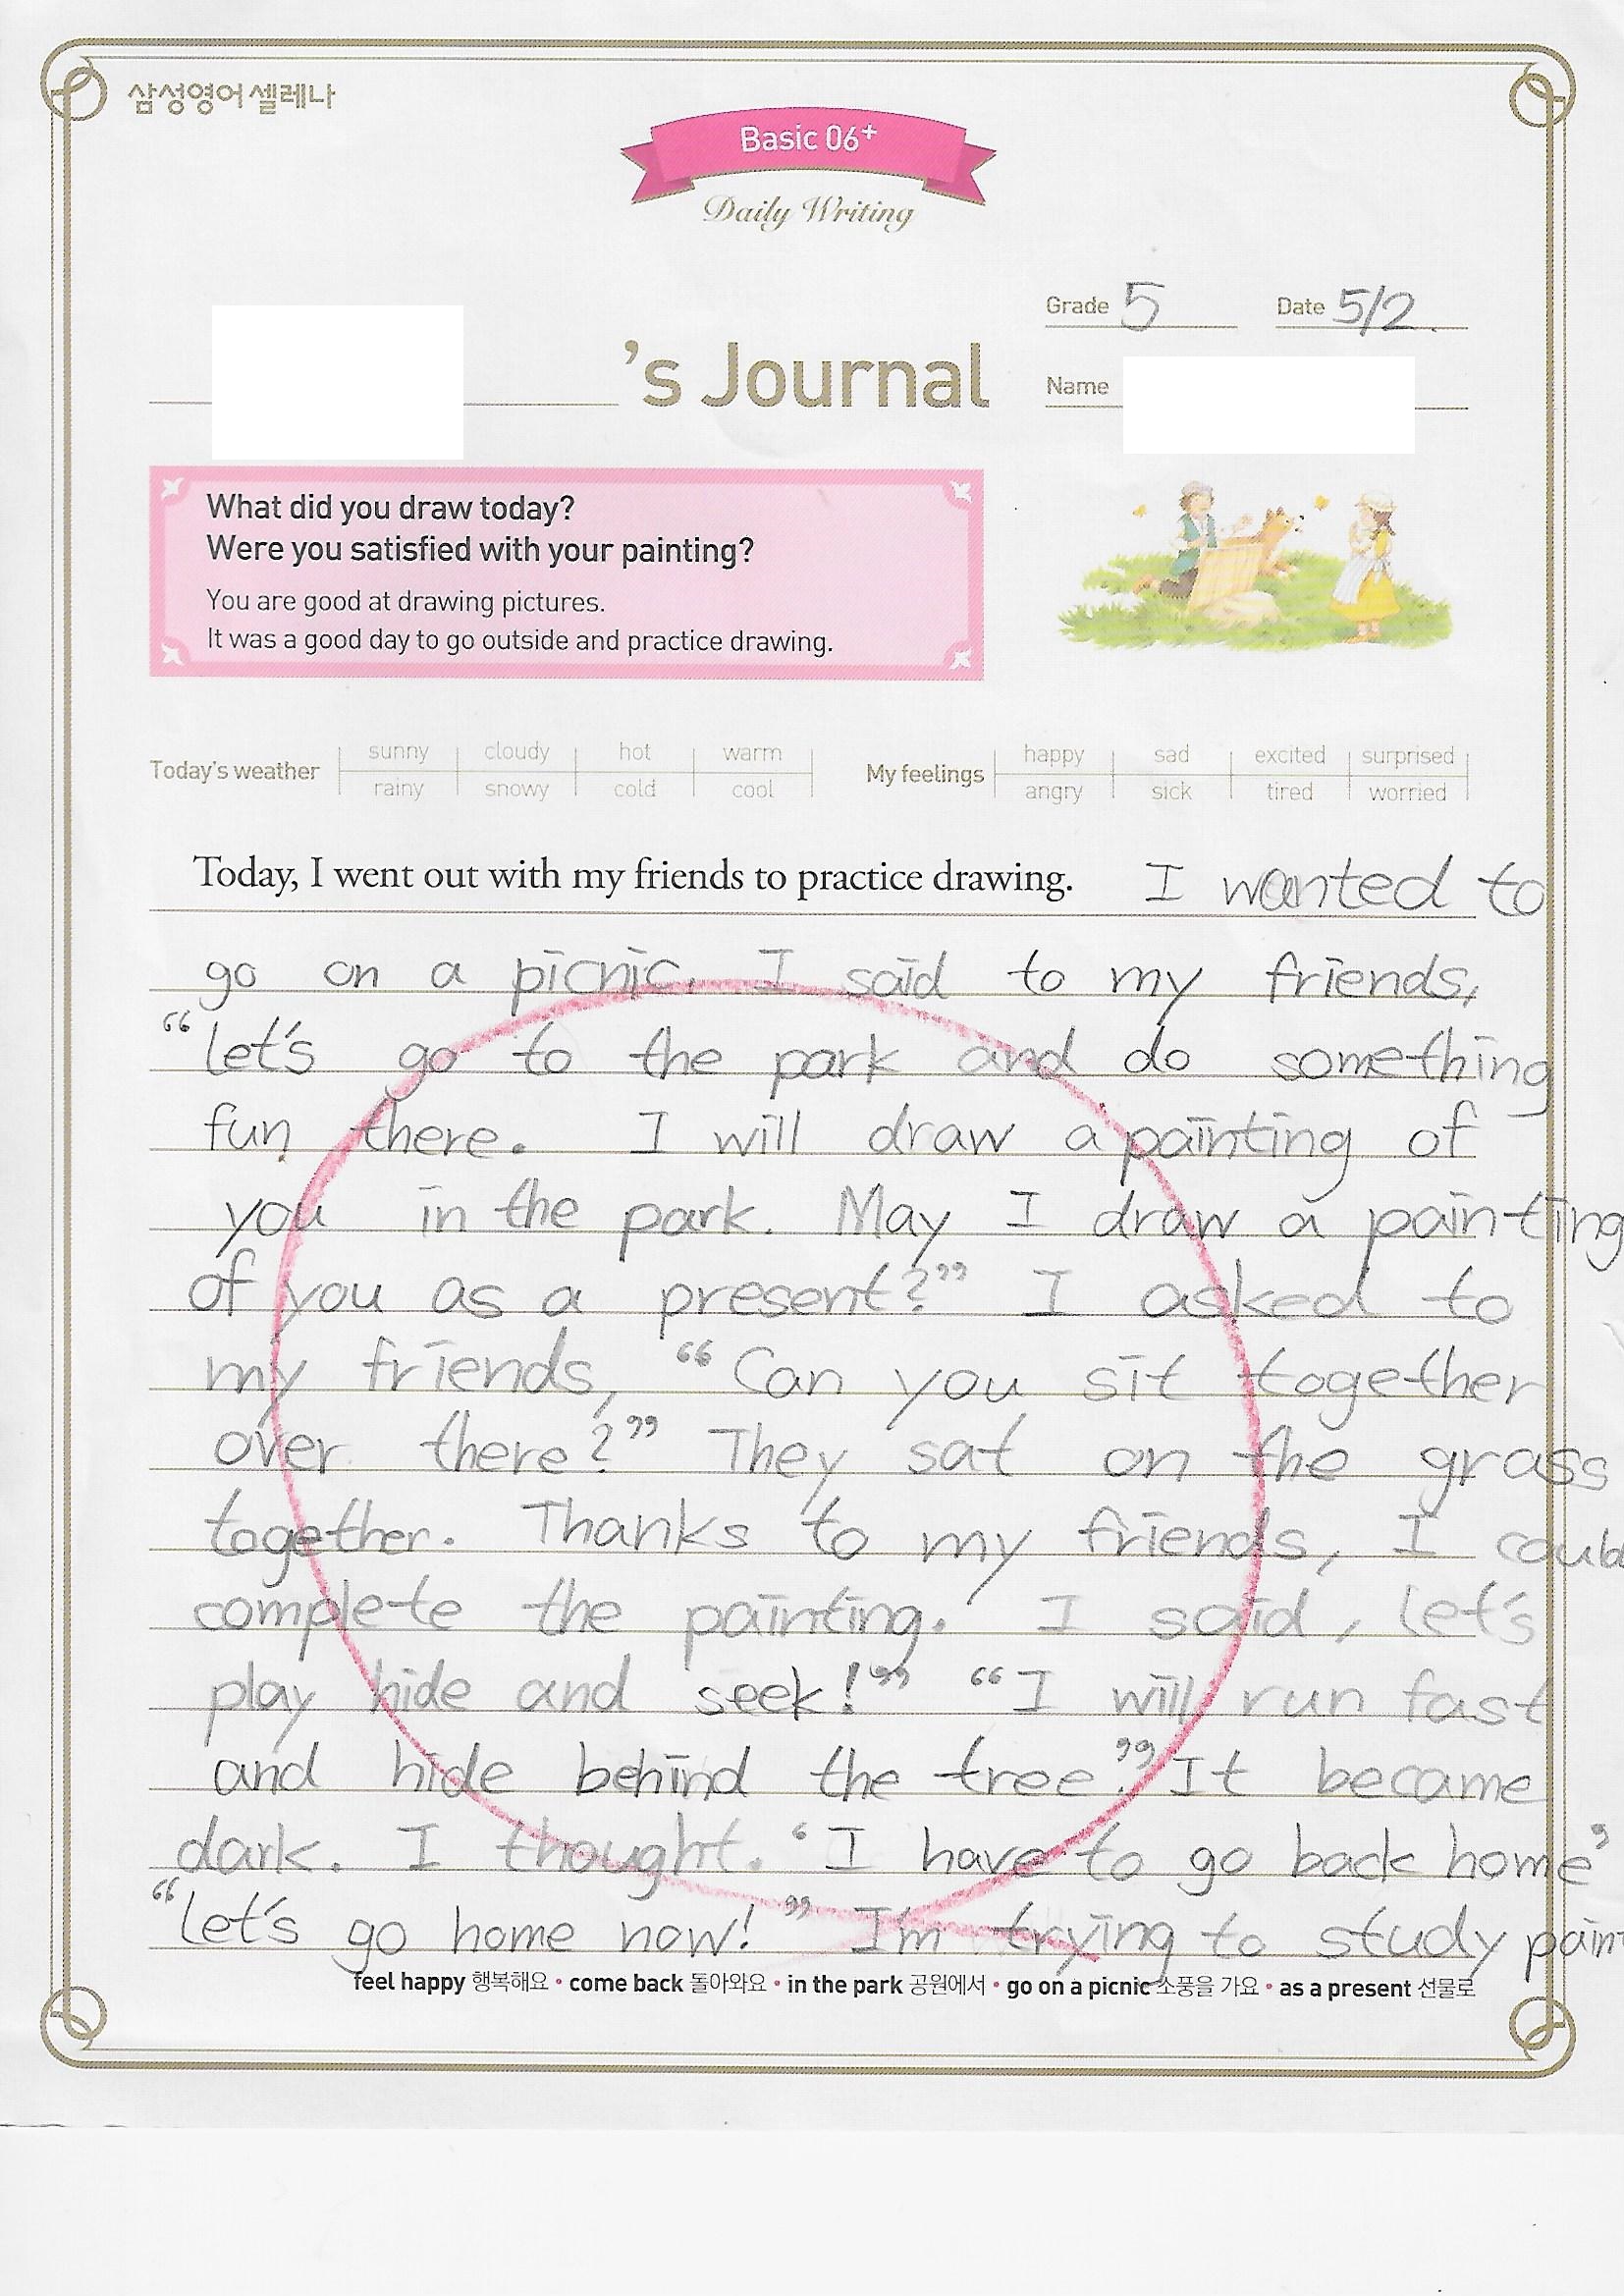 삼성영어 셀레나
Basic 06+
Daily Writing
Grade 5 Date 5/2.
's Journal
Name
What did you draw today?
Were you satisfied with your painting?
You are good at drawing pictures.
It was a good day to go outside and practice drawing.
Today's weather sunny cloudy hot warm
rainy snowy cold cool
My feelings happy sad excited surprised
angry sick tired worried
Today, I went out with my friends to practice drawing. I wanted to
go on a picnic. I said to my friends,
“let's go to the park and do something
fun there. I will draw a painting of
you in the park. May I draw a painting
of you as a present?” I asked to
my friends, “Can you sit together
over there?” They sat on the grass
together. Thanks to my friends, I
complete the painting. I said, let's
play hide and seek!” “I will run fast
and hide behind the tree.” It became
dark. I thought. ‘I have to go back home’
“let's go home now!” I'm trying to study
feel happy 행복해요 • come back 돌아와요 • in the park 공원에서 • go on a picnic 소풍을 가요 • as a present 선물로